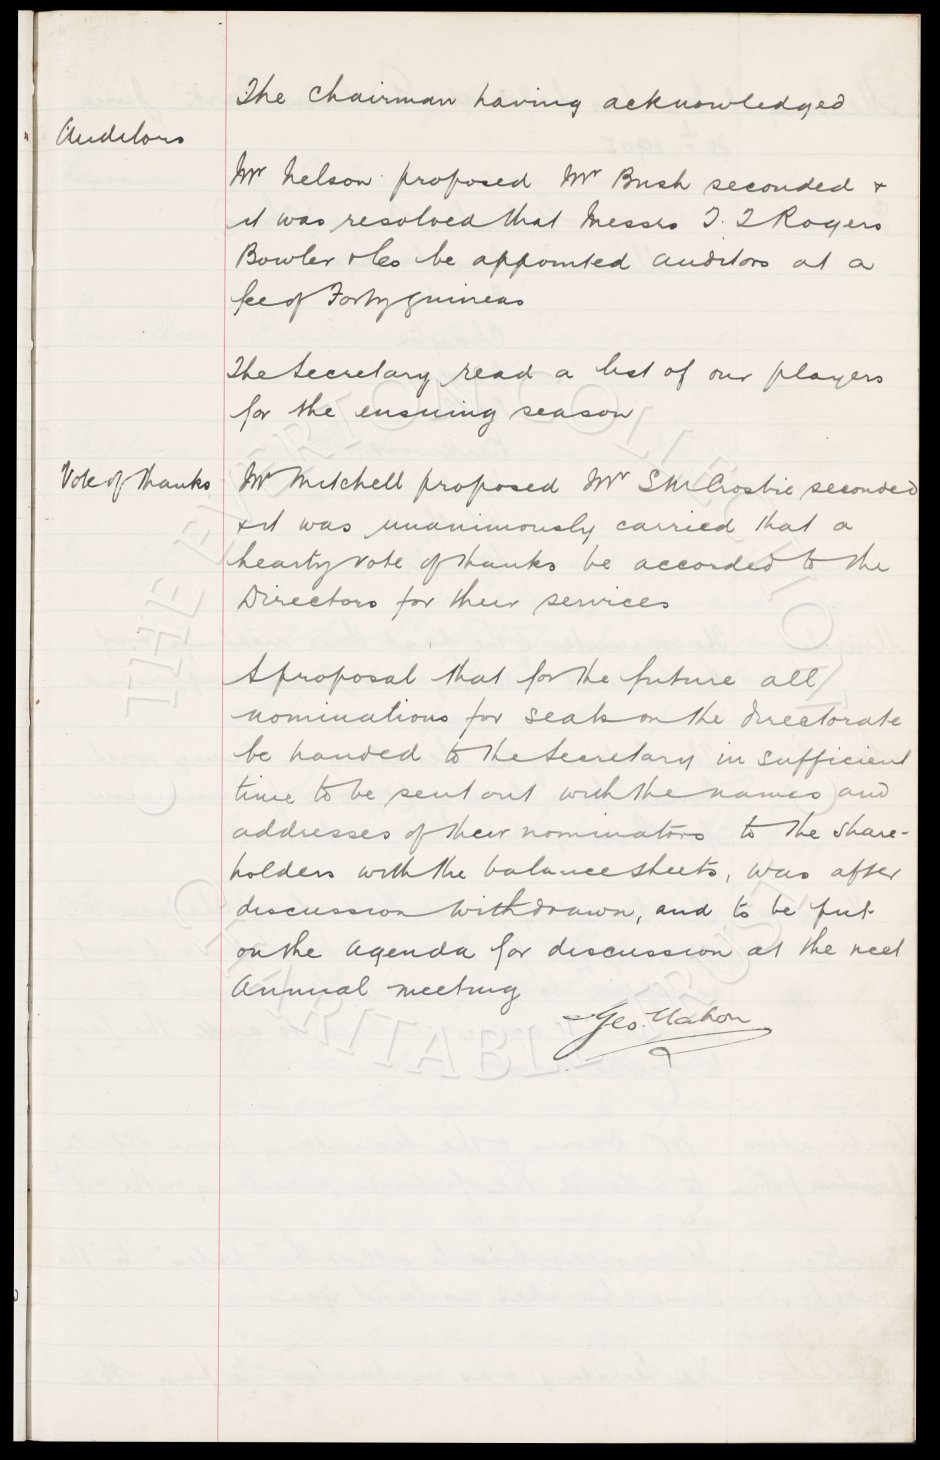 The Chairman having acknowledged
Auditors
Mr Nelson proposed Mr Bush seconded &
it was resolved that Messrs T. T Rogers
Bowler & Co be appointed auditors at a
fee of Forty guineas
The Secretary read a list of our players
for the ensuing season
Vote of thanks Mr Mitchell proposed Mr S M Crosbie seconded
& it was unanimously carried that a
hearty vote of thanks be accorded to the
Directors for their services
A proposal that for the future all
nominations for seats on the directorate
be handed to the Secretary in sufficient
time to be sent out with the names and
addresses of their nominators to the share-
holders with the balance sheets, was after
discussion withdrawn, and to be put
on the agenda for discussion at the next
Annual meeting
Geo. Mahon
THE EVERTON COLLECTION
CHARITABLE TRUST